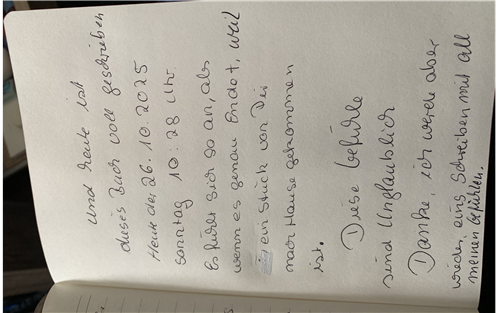 und heute ist
dieses Buch voll geschrieben
Heute der 26.10.2025
Sonntag 10:28 Uhr.
Es fühlt sich so an, als
wenn es genau Endet, weil
ein Stück von Dir
nach Hause gekommen
ist.
Diese Gefühle
sind Unglaublich
Danke, ich werde aber
wieder, eins Schreiben mit all
meinen Gefühlen.